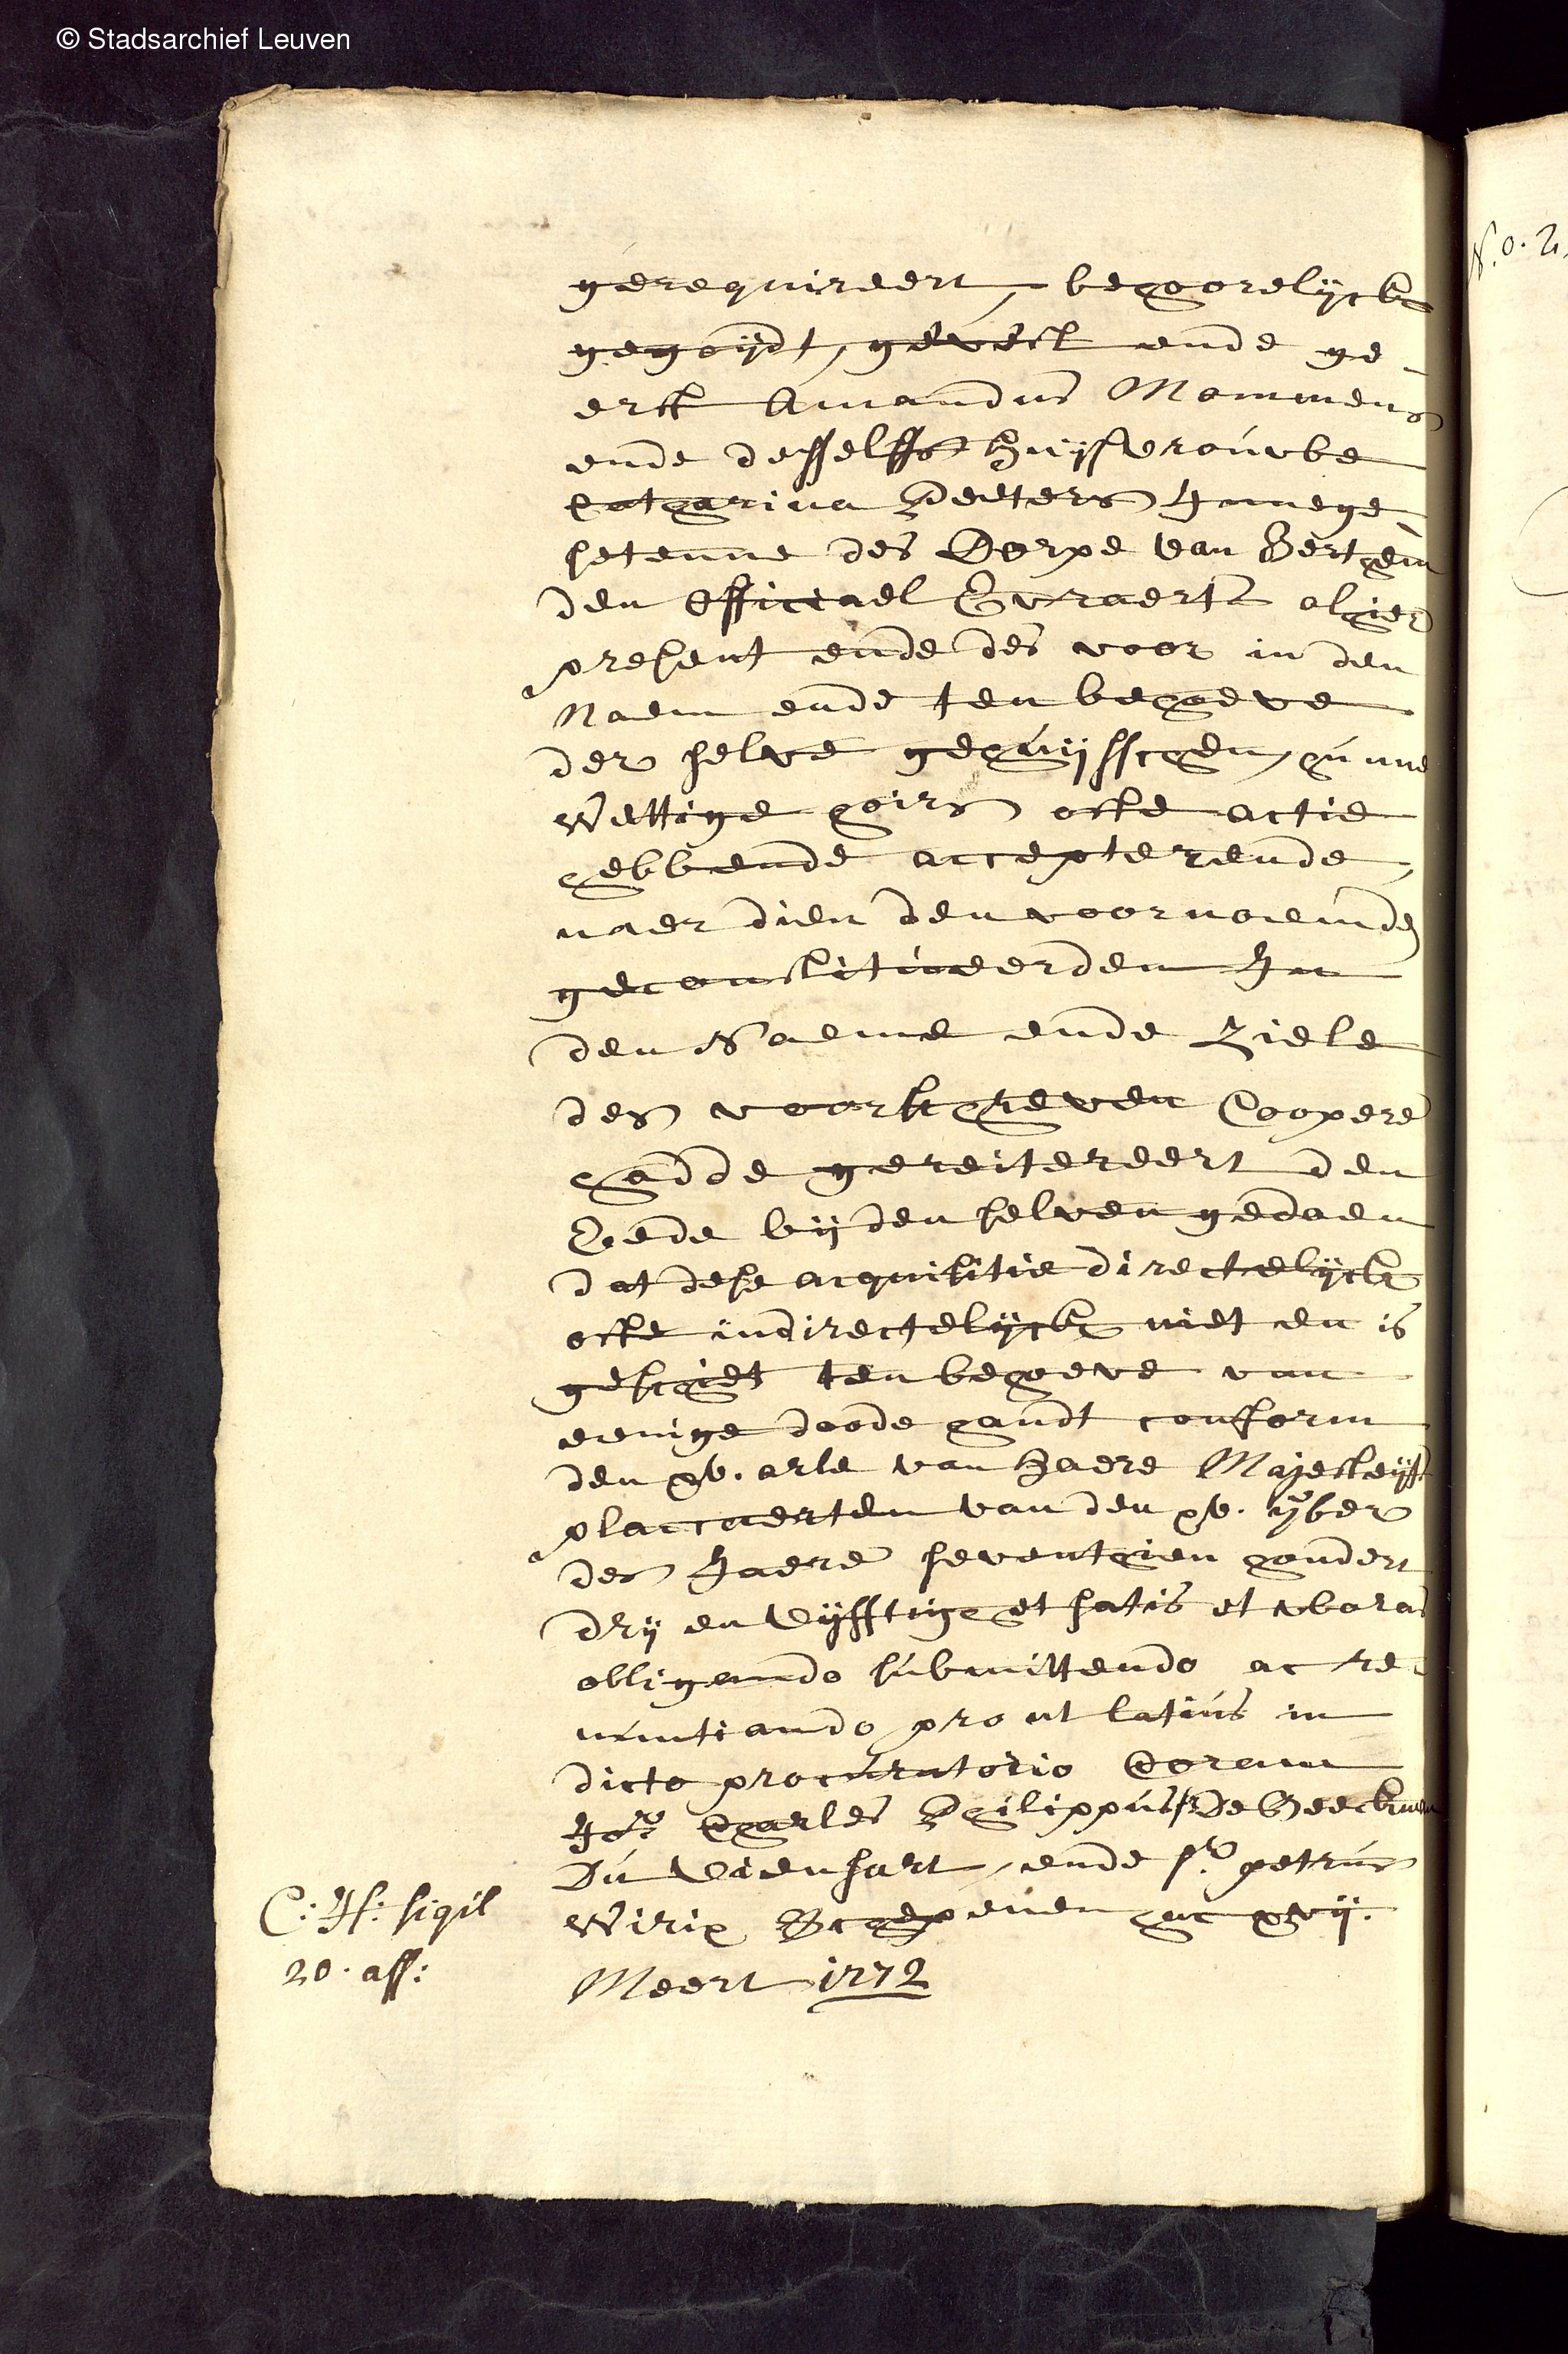 © Stadsarchief Leuven
gerequireert, behoorelijck
gegoijdt, gevest ende ge-
erft Amandus Mommens
ende desselffs huijsvrouwe
Catharina Peeters Innege
setenne des Dorpe van Berthem
den officiael Evraerts alhier
present ende des voor in den
Naem ende ten behoeve
der selve gehuijsschen, hunne
Wettige hoirs ofte actie
hebbende accepterende,
naer dien den voornoemden
geconstitueerden In
den Naeme ende Ziele
des voorschreven Coopere
hadde gereitereert den
Eede bij den selven gedaen
dat dese acquisitie directelijck
ofte indirectelijck niet en is
geschiet ten behoeve van
eenige doode handt conform
den xv. arle van haere Majesteijts
placcaerten van den xv. 7ber
des Jaere seventhien hondert
drij en vijfftigh et satis et waras
obligando submittendo ac re-
nuntiando pro ut latius in
dicto procuratorio Coram
Jor Charles Philippus De Beeckman
Du Vieusart, ende sr petrus
Wirix Schepenen hac xvij.
Meert 1772
C: H: sigil
20. ass:
N.o. 2